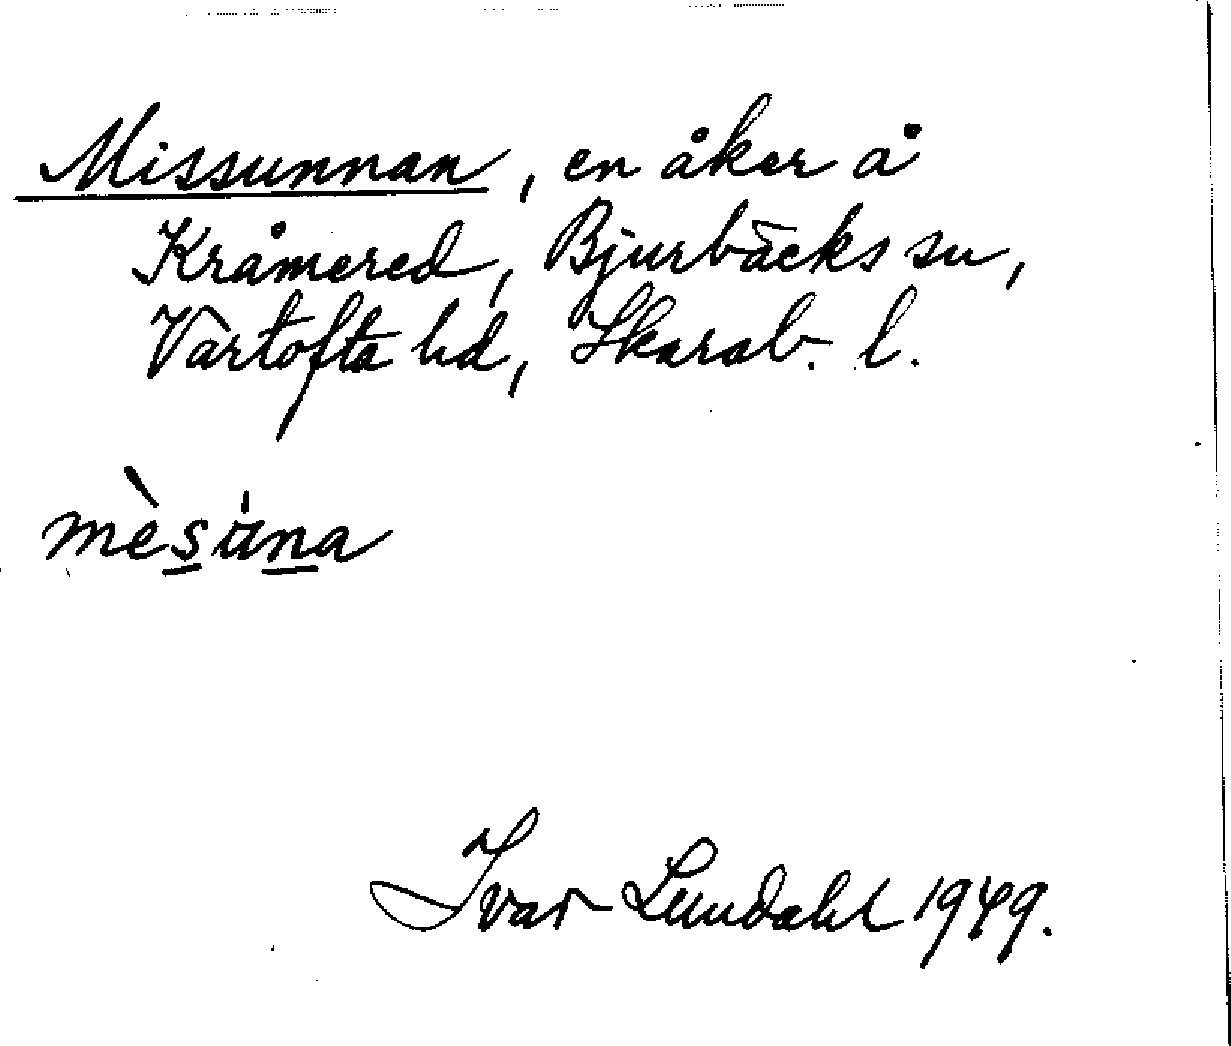 Missunnan, en åker å
Kråmered, Bjurbäcks sn,
Vartofta hd, Skarab. l.
mèsu̇na
Ivar Lundahl 1949.